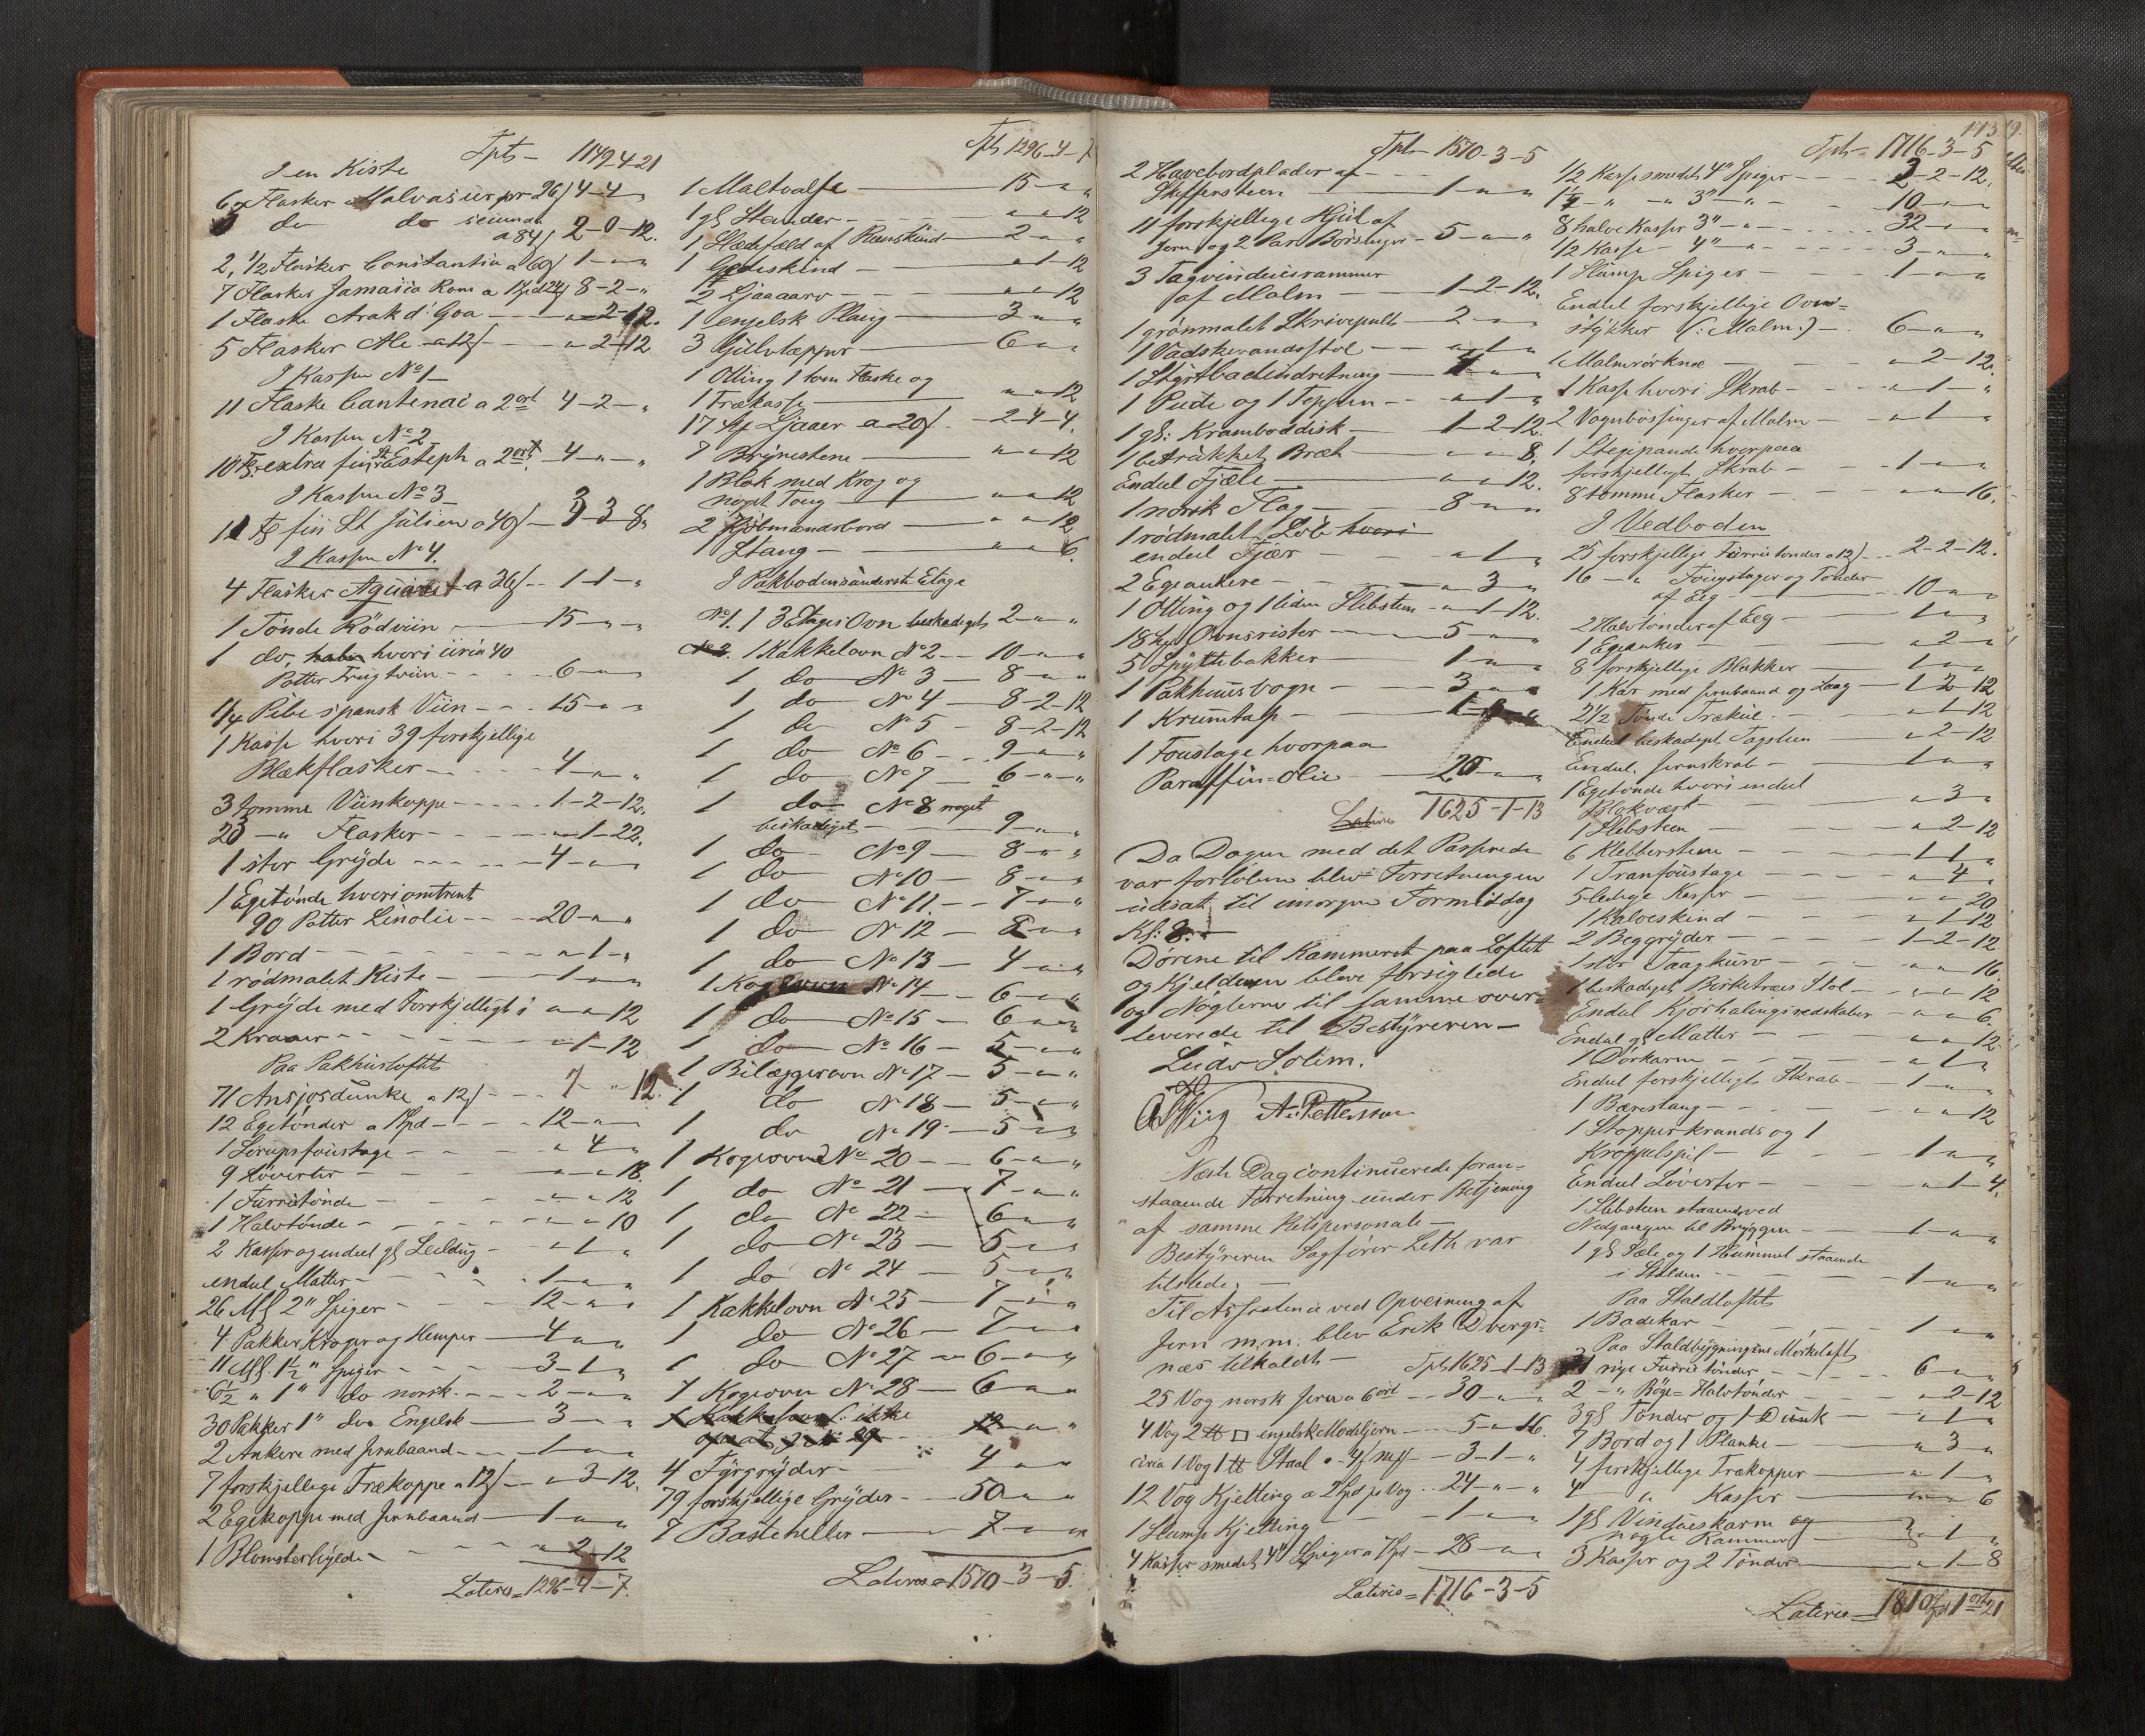 Tpts – 1149-4-21
I en Kiste
6 Flasker Malvasier pr 26 s 4-4-"
do do secunda
a 84 s 2-0-12.
2, 1/2 Flasker Constantia a 60 s 1-"-"
7 Flasker Jamaica Rom a 1 Spd 24 s 8-2-"
1 Flaske Arak d'Goa — "-2-12.
5 Flasker Ale a 12 s — "-2-12
I Kassen No 1 —
11 Flaske Cantenac a 2 ort 4-2-"
I Kassen No 2
10 Fl. extra fin St Esteph a 2 ort 4-"-"
I Kassen No 3
11 Fl fin St Julien a 40 s — 3-3-8
I Kassen No 4.
4 Flasker Aquavit a 36 s — 1-1-"
1 Tønde Rødviin — 15-"-"
1 do, hvori circa 40
Potter Frugtviin — 6-"-"
1/4 Pibe spansk Viin — 15-"-"
1 Kasse hvori 39 forskjellige
Blækflasker — 4-"-"
3 tomme Viinkoppe — 1-2-12.
23 -"- Flasker — "-1-22.
1 stor Gryde — 4-"-"
1 Egetønde hvori omtrent
90 Potter Linolie — 20-"-"
1 Bord — "-1-"
1 rødmalet Kiste — 1-"-"
1 Gryde med Forskjelligt i "-"-12
2 Kraner — "-1-12
Paa Pakhusloftet
71 Ansjosdunke a 12 s — 7-"-12
12 Egetønder a 1 Spd — 12-"-"
1 Sirupsfoustage — "-4-"
9 Løverter — "-"-18.
1 Furretønde — "-"-12
1 Halvtønde — "-"-10
2 Kasser og endeel gl Seildug — "-1-"
endeel Matter — 1-"-"
26 Mll 2" Spiger — 12-"-"
4 Pakker Kroger og Hemper — 4-"-"
11 Mll 1½" Spiger — 3-1-"
6½ " 1" do norsk — 2-"-"
30 Pakker 1" do Engelsk — 3-"-"
2 Ankere med Jernbaand — 1-"-"
7 forskjellige Trækoppe a 12 s — "-3-12.
2 Egekoppe med Jernbaand — 1-"-"
1 Blomsterhylde — "-2-12
Lateris = 1296-4-7.
Tpts 1296-4-7
1 Maltvalse — 15-"-"
1 gl Stander — "-"-12
1 Slædefæld af Reenskind — 2-"-"
1 Gedeskind — "-1-12
2 Ljaaarv — "-"-12
1 engelsk Plaug — 3-"-"
3 Gulvtæpper — 6-"-"
1 Otting 1 tom Flaske og
1 Trækasse — "-"-12
17 Stk Ljaaer a 20 s — 2-4-4.
7 Brynestene — "-"-12
1 Blok med Krog og
noget Toug — "-"-12
2 Kjøbmandsbord — "-"-12
1 Stang — "-"-6.
I Pakbodens underste Etage
No 1. 1 3 Etages Ovn beskadiget 2-"-"
No 2. 1 Kakkelovn No 2 — 10-"-"
1 do No 3 — 8-"-"
1 do No 4 — 8-2-12
1 do No 5 — 8-2-12
1 do No 6 — 9-"-"
1 do No 7 — 6-"-"
1 do No 8 noget
beskadiget — 9-"-"
1 do No 9 — 8-"-"
1 do No 10 — 8-"-"
1 do No 11 — 7-"-"
1 do No 12 — 8-"-"
1 do No 13 — 4-"-"
1 Kogeovn No 14 — 6-"-"
1 do No 15 — 6-"-"
1 do No 16 — 5-"-"
1 Bilæggerovn No 17 — 5-"-"
1 do No 18 — 5-"-"
1 do No 19 — 5-"-"
1 Kogeovn No 20 — 6-"-"
1 do No 21 — 7-"-"
1 do No 22 — 6-"-"
1 do No 23 — 5-"-"
1 do No 24 — 5-"-"
1 Kakkelovn No 25 — 7-"-"
1 do No 26 — 7-"-"
1 do No 27 — 6-"-"
1 Kogeovn No 28 — 6-"-"
1 Kakkelovn (: ikke
opsat :) No 29 — 12-"-"
4 Fyrgryder — 4-"-"
79 forskjellige Gryder — 50-"-"
7 Bagsteheller — 7-"-"
Lateris = 1570-3-5.
113
Tpts – 1570-3-5
2 Havebordplader af
Skiffersteen — 1-"-"
11 forskjellige Hjul af
Jern og 2 Par Børsinger — 5-"-"
3 Tagvinduesrammer
af Malm — 1-2-12.
1 grønmalet Skrivepult — 2-"-"
1 Vadskevandsstol — "-1-"
1 Styrtbadindretning —
1 Pude og 1 Teppen — "-1-"
1 gl: Kramboddisk — 1-2-12.
1 betrukket Bræt — "-"-8.
Endeel Fjæle — "-"-12.
1 norsk Flag — 8-"-"
1 rødmalet Løb hvori
endeel Fjær — "-1-"
2 Egeankere — "-3-"
1 Otting og 1 liden Slebsteen — "-1-12.
18 hele Ovnsrister — 5-"-"
5 Spyttebakker — 1-"-"
1 Pakhuusvogn — 3-"-"
1 Krumtap —
1 Foustage hvorpaa
Paraffin-Olie — 20-"-"
Lateris 1625-1-13
Da Dagen med det Passerede
var forløben blev Forretningen
udsat til imorgen Formiddag
Kl: 8. —
Dørene til Kammeret paa Loftet
og Kjelderen bleve forsiglede
og Nøglerne til samme over-
leverede til Bestyreren —
Ludv Solem.
A Wiig A. Pettersson
Næste Dag continuerede foran-
staaende Forretning under Betjening
af samme Retspersonale —
Bestyreren Sagfører Leth var
tilstede. —
Til Assistence ved Opveining af
Jern m.m. blev Erik Dvergs-
næs tilkaldt — Tpts 1625-1-13
25 Vog norsk Jern a 6 ort — 30-"-"
4 Vog 2 ℔ □ engelsk Modeljern — 5-"-16.
circa 1 Vog 1 ℔ Staal — 3-1-"
12 Vog Kjetting a 2 Spd pr Vog — 24-"-"
1 Stump Kjetting — 1-"-"
4 Kasser smedet 4" Spiger a 7 Spd — 28-"-"
Lateris = 1716-3-5
Tpts – 1716-3-5
1/2 Kasse smedet 4" Spiger — 2-2-12.
1½ " " 3" " — 10-"-"
8 halve Kasser 3" " — 32-"-"
1/2 Kasse 4" " — 3-"-"
1 Slump Spiger — 1-"-"
Endeel forskjellige Ovns-
stykker (: Malm :) — 6-"-"
1 Malmrørknæ — "-2-12.
1 Kasse hvori Skrab — "-1-"
2 Vognbøssinger af Malm — "-1-"
1 Stegepande hvorpaa
forskjelligt Skrab — 1-"-"
8 tomme Flasker — "-"-16.
I Vedboden
25 forskjellige Furretønder a 12 s — 2-2-12.
16 -"- Foustager og Tønder
af Eeg — 10-"-"
2 Halvtønder af Eeg — 1-"-"
1 Egeanker — "-2-"
8 forskjellige Blokker — 1-"-"
1 Kar med Jernbaand og Laag — 1-2-12
2½ Tønde Trækul — "-1-12
Endeel beskadiget Tagsteen — "-2-12
Endeel Jernskrab — 1-"-"
1 Egetønde hvori endeel
Blokværk — "-3-"
1 Slebsteen — "-2-12
6 Klebberstene — 1-1-"
1 Tranfoustage — "-4-"
5 ledige Kasser — "-"-20
1 Kalveskind — "-1-12
2 Beggryder — 1-2-12
1 stor Taagkurv — "-"-16.
1 beskadiget Birketræes Stol — "-"-12
Endeel Kjørhalingsredskaber — "-"-6.
Endeel gl Matter — "-"-12
1 Dørkarm — "-1-"
Endeel forskjelligt Skrab — 1-"-"
1 Bærestang — "-"-12
1 Stopperkrands og 1
Kroppelspil — 1-"-"
Endeel Løverter — "-1-4.
1 Slebsteen staaende ved
Nedgangen til Bryggen — 1-"-"
1 gl Sæle og 1 Hummel staaende
i Stalden — 1-"-"
Paa Staldloftet
1 Badekar — 1-"-"
Paa Staldbygningens Mørkeloft
nye Furretønder — 6-"-"
2 -"- Bøge-Halvtønder — "-2-12
3 gl Tønder og 1 Dunk — "-1-"
7 Bord og 1 Planke — "-3-"
4 forskjellige Trækopper — "-1-"
4 " Kasser — "-"-6
1 gl Vindueskarm og
nogle Rammer — "-1-"
3 Kasser og 2 Tønder — "-1-8
Lateris = 1810 Spd 1 ort 21